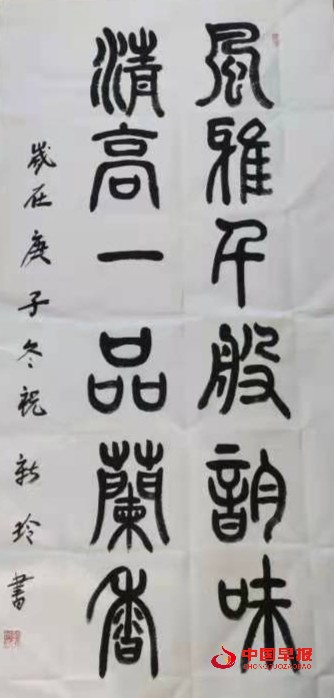 風雅千般韵味
清高一品蘭香
歲在庚子冬祝新玲書
中国早报